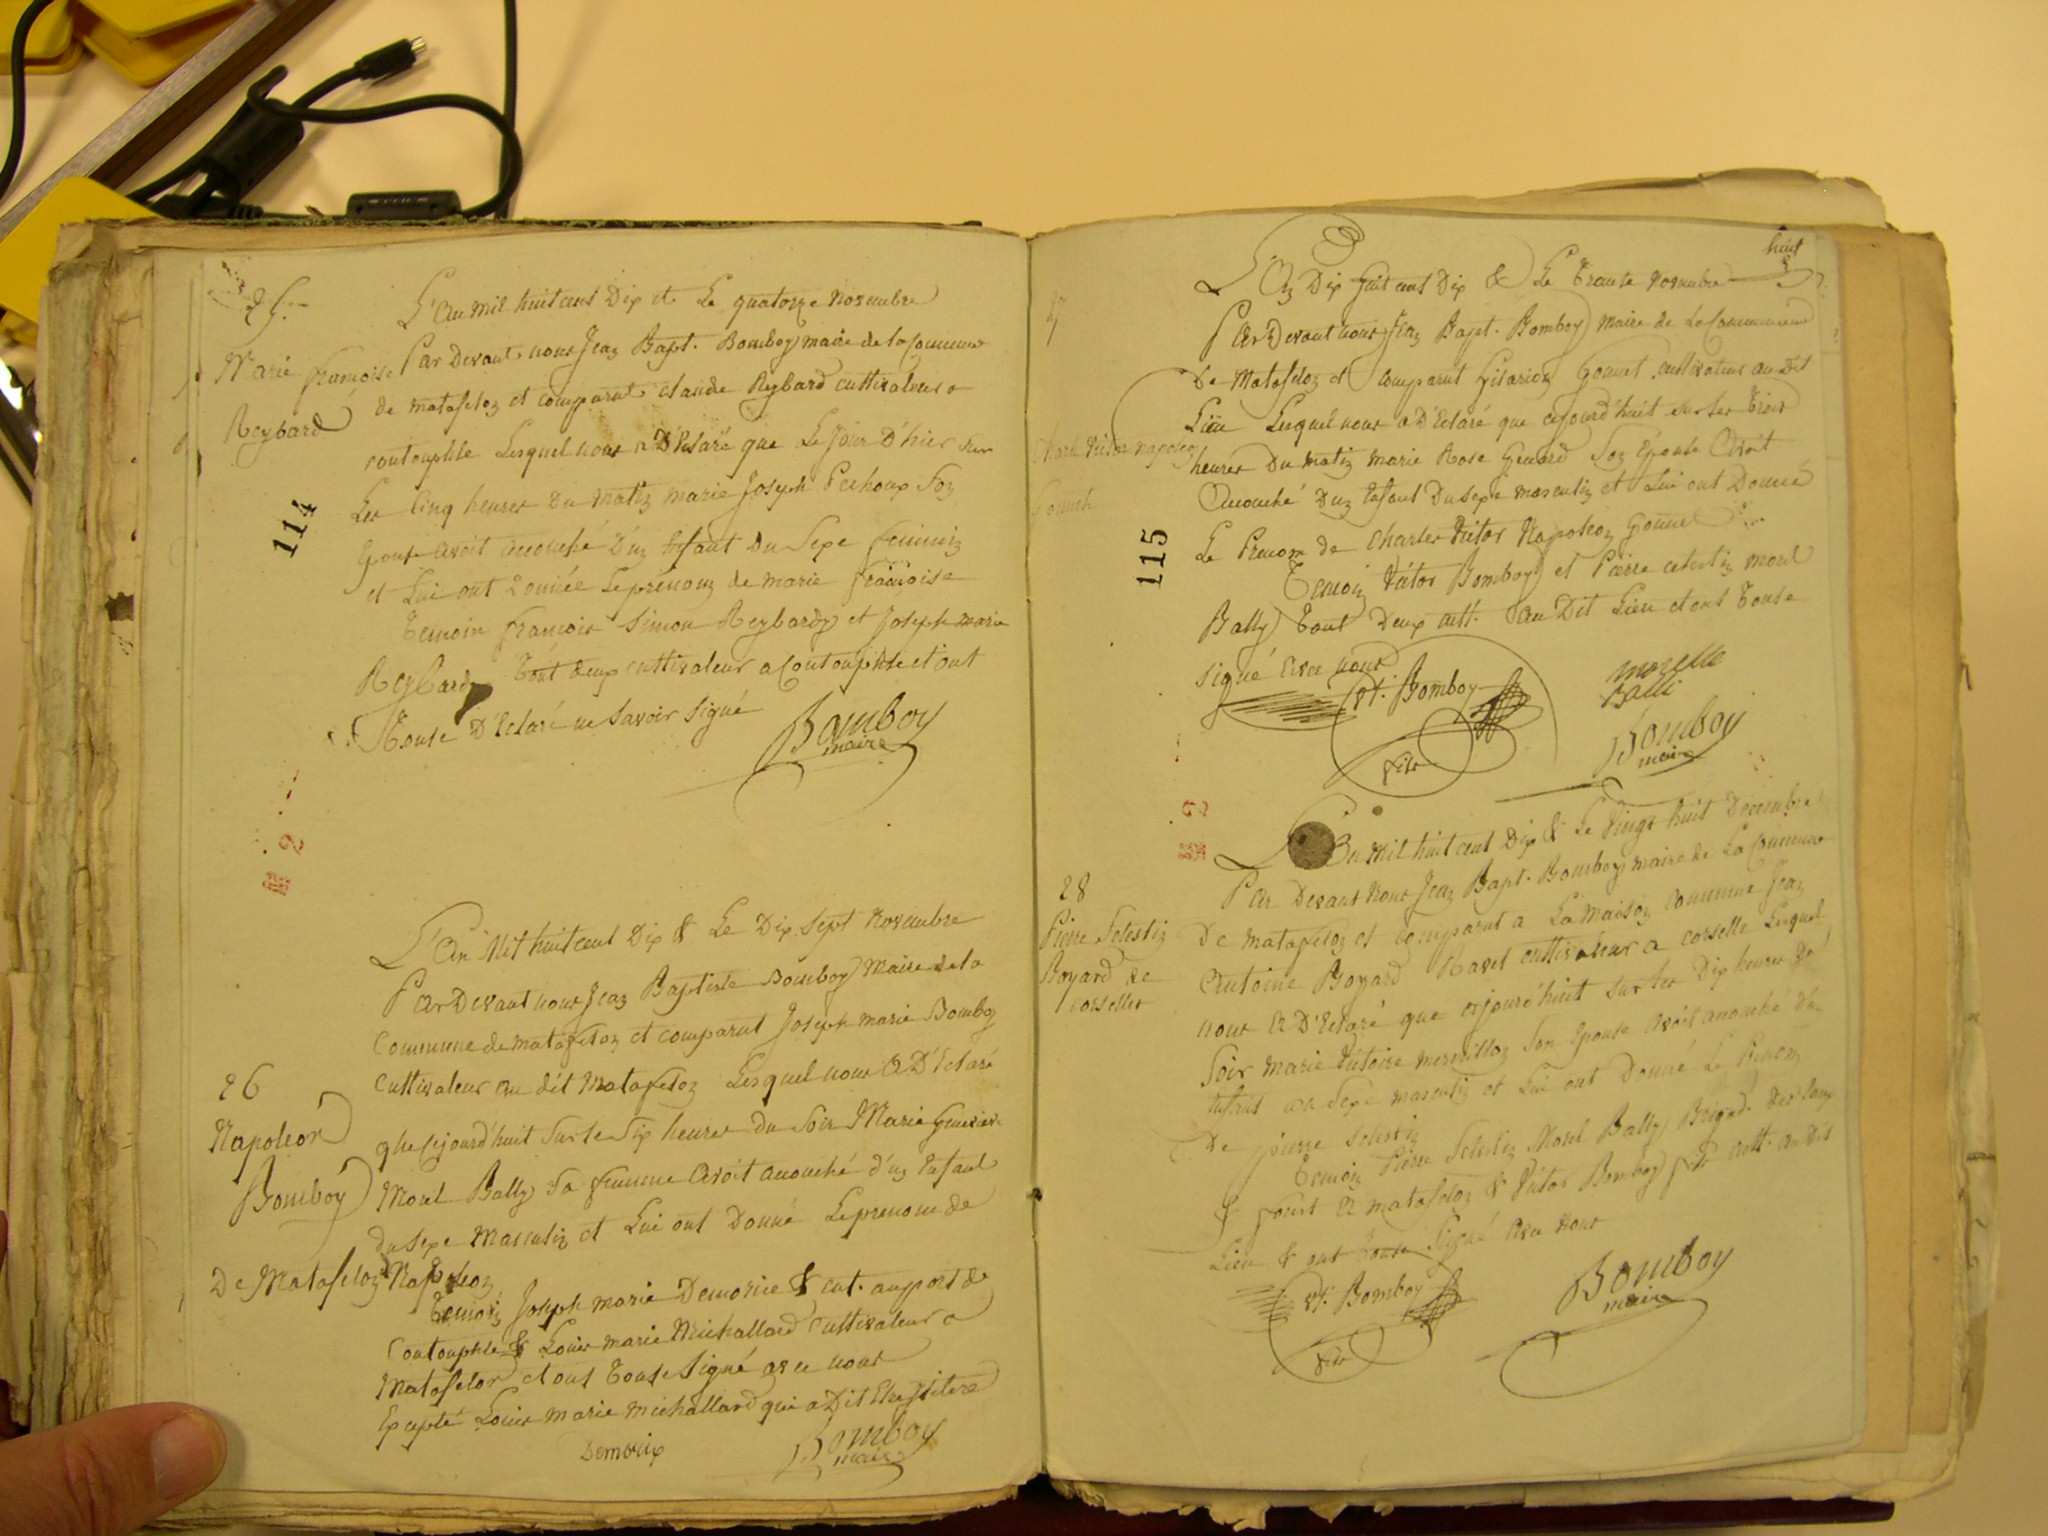 25.
Marie françoise
Reybard
114
L'an mil huit cent Dix et Le quatorze novembre
Par Devant nous Jean Bapt. Bomboy maire de la Commune
de matafelon et comparut claude Reybard cultivateur a
coutouphle Lesquel nous a D'Eclaré que Le Jour D'hier sur
Les cinq heures du matin marie Joseph Pechoux son
Epouse avoit accouché d'un Enfant Du Sexe feminin
et Lui ont Donnée Le prenom de marie françoise
Temoin françois Simon Reybard et Joseph marie
Reybard Tout deux cultivateur a Coutouphle et ont
Touse D'Eclaré ne Savoir Signé
Bomboy
maire
26
Napoleon
Bomboy
De Matafelon
L'an Mil huit cent Dix & Le Dix Sept Novembre
Par Devant nous Jean Baptiste Bomboy Maire de la
Commune de matafelon et comparut Joseph marie Bomboy
Cultivateur au dit Matafelon Lesquel nous A D'Eclaré
que cejourd'huit Sur le Six heures du Soir Marie
Morel Bally Sa femme Avoit accouché d'un Enfant
du Sexe Masculin et Lui ont Donné Le prenom de
Napoleon
Temoin Joseph marie & cut. au port de
Coutouphle & Louis marie Michallard Cultivateur a
Matafelon et ont Touse Signé avec nous
Excepté Louis marie michallard qui a Dit
Bomboy
maire
huit
8
27
Charle Victor napoleon
Gonnet
115
L'An Dix huit cent Dix & Le Trente novembre
Par Devant nous Jean Bapt. Bomboy maire de La Commune
De Matafelon et Comparut Hilarion Gonnet cultivateur au Dit
Lieu Lesquel nous a D'Eclaré que cejourd'huit sur les Trois
heures Du matin Marie Rose Son Epouse Avoit
Accouché D'un Enfant Du Sexe masculin et Lui ont Donné
Le Prenom de Charles Victor Napoleon Gonnet
Temoin Victor Bomboy et Pierre celestin morel
Bally Tout Deux cult. au Dit Lieu et ont Touse
Signé avec nous
Vt. Bomboy
fils
morelle
Balli
Bomboy
maire
28
Pierre Selestin
Boyard de
corselles
L'An Mil huit cent Dix & Le Vingt huit Decembre
Par Devant Nous Jean Bapt. Bomboy maire de La Commune
De matafelon et comparut a La maison commune Jean
Antoine Boyard Ravet cultivateur a corselle Lesquel
nous A D'Eclaré que cejourd'huit sur les Dix heures du
Soir marie Victoire Son Epouse Avoit accouché d'un
Enfant du Sexe masculin et Lui ont Donné Le Prenom
De pierre Selestin
Temoin Pierre Selestin Morel Bally
a matafelon & Victor Bomboy fils cult. au Dit
Lieu & ont Touse Signé Avec Nous
Vt. Bomboy
fils
Bomboy
maire